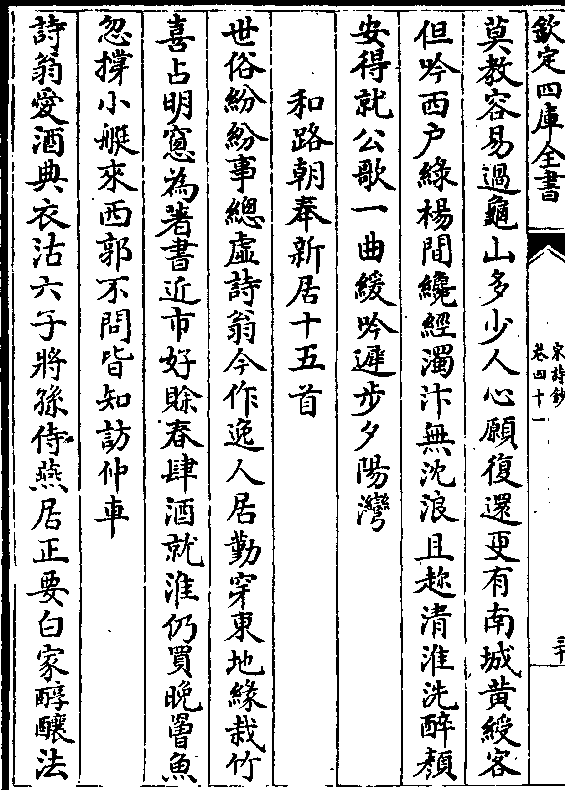 欽定四庫全書
宋詩鈔
卷四十一
二十
莫教容易過龜山多少人心願復還更有南城黄綬客
但吟西户緑楊間纔經濁汴無沈浪且趂清淮洗醉顔
安得就公歌一曲緩吟遲步夕陽灣
和路朝奉新居十五首
世俗紛紛事總虚詩翁今作逸人居勤穿東地緣栽竹
喜占明窻為著書近市好賖春肆酒就淮仍買晚罾魚
忽撑小艇來西郭不問皆知訪仲車
詩翁愛酒典衣沽六子將孫侍燕居正要白家醇釀法